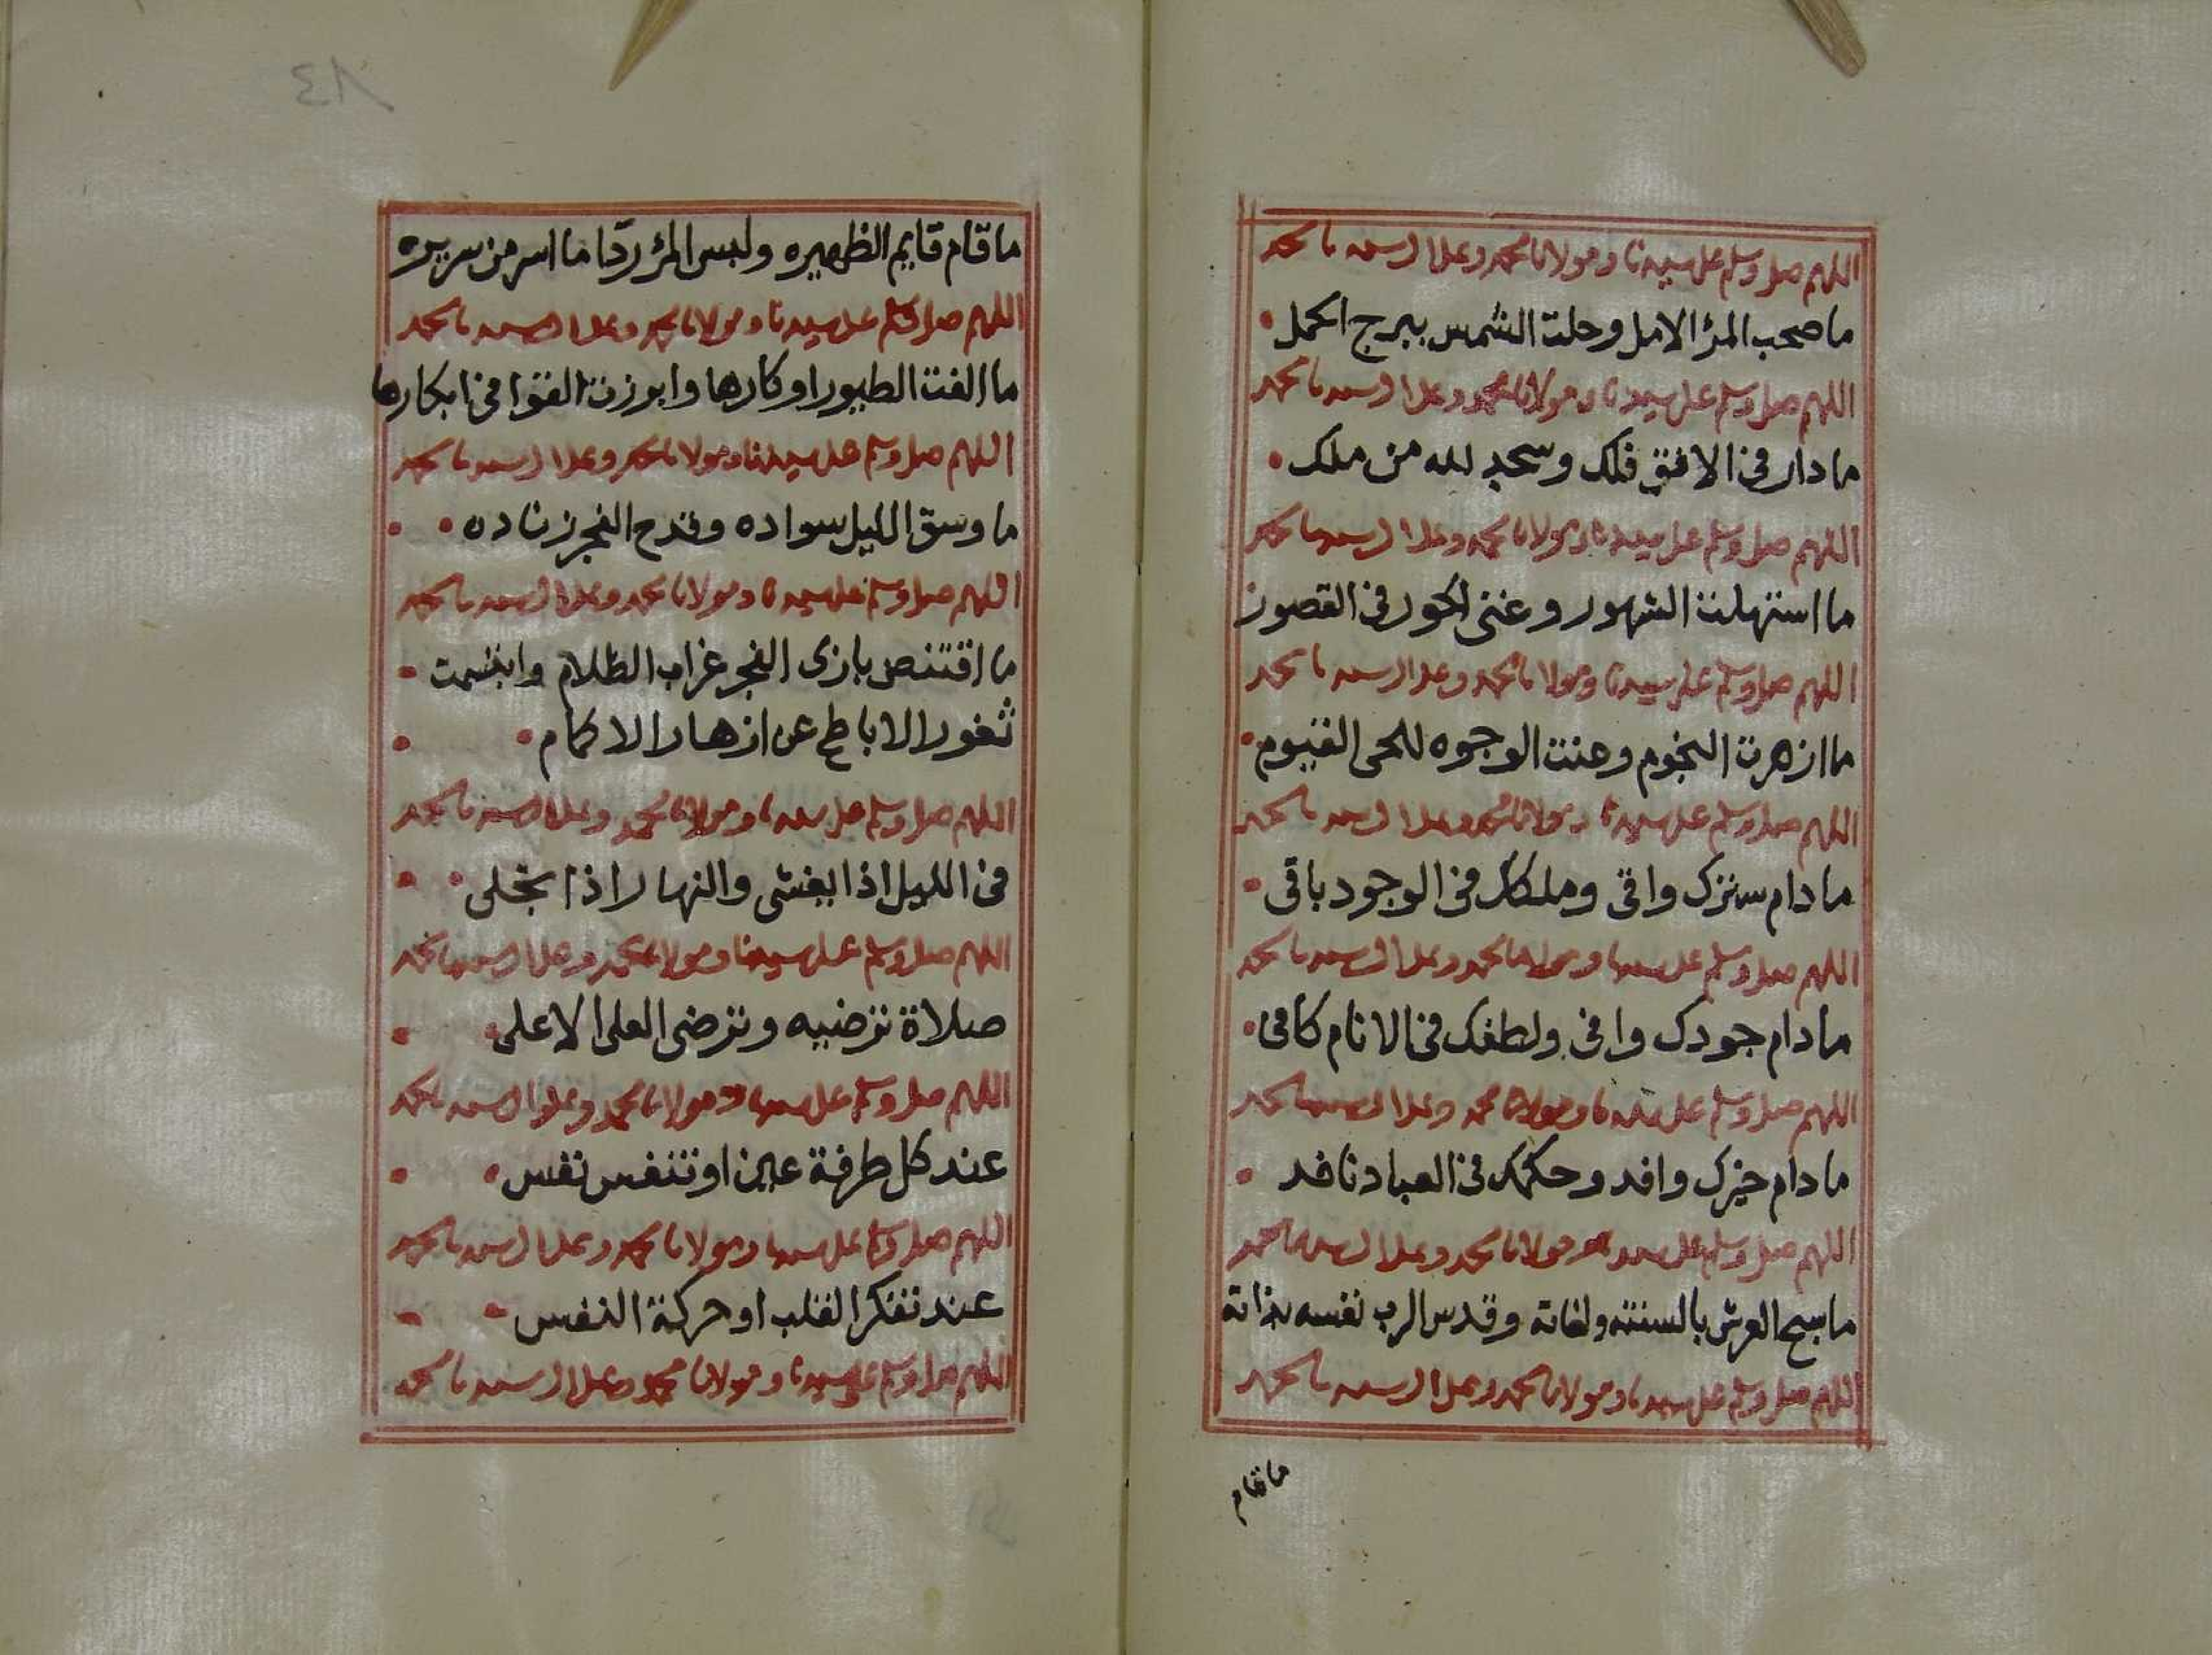 اللهم صل وسلم على سيدنا ومولانا محمد وعلى ال سيدنا محمد
ما صحب المرؤ الامل وحلت الشمس ببرج الحمل
اللهم صل وسلم على سيدنا ومولانا محمد وعلى ال سيدنا محمد
ما دار فى الافق فلك وسجد لله من ملك
اللهم صل وسلم على سيدنا ومولانا محمد وعلى ال سيدنا محمد
ما استهلت الشهور وغنى الحور فى القصور
اللهم صل وسلم على سيدنا ومولانا محمد وعلى ال سيدنا محمد
ما ازهرت النجوم وعنت الوجوه للحى القيوم
اللهم صل وسلم على سيدنا ومولانا محمد وعلى ال سيدنا محمد
ما دام سترك واقى وملكك فى الوجود باقى
اللهم صل وسلم على سيدنا ومولانا محمد وعلى ال سيدنا محمد
ما دام جودك وافى ولطفك فى الانام كافى
اللهم صل وسلم على سيدنا ومولانا محمد وعلى ال سيدنا محمد
ما دام خيرك وافد وحكمك فى العباد نافد
اللهم صل وسلم على سيدنا ومولانا محمد وعلى ال سيدنا محمد
ما سبح العرش بالسنته ولغاته وقدس الرب نفسه بذاته
اللهم صل وسلم على سيدنا ومولانا محمد وعلى ال سيدنا محمد
ما قام
ما قام قايم الظهيره ولبس المرؤ ردّا ما اسر من سريره
اللهم صل وسلم على سيدنا ومولانا محمد وعلى ال سيدنا محمد
ما الفت الطيور اوكارها وابرزت فى ابكارها
اللهم صل وسلم على سيدنا ومولانا محمد وعلى ال سيدنا محمد
ما وسق الليل سواده وقدح الفجر زناده
اللهم صل وسلم على سيدنا ومولانا محمد وعلى ال سيدنا محمد
ما اقتنص بازى الفجر غراب الظلام وابتسمت
ثغور الاباطح عن ازهار الاكمام
اللهم صل وسلم على سيدنا ومولانا محمد وعلى ال سيدنا محمد
فى الليل اذا يغشى والنهار اذا تجلى
اللهم صل وسلم على سيدنا ومولانا محمد وعلى ال سيدنا محمد
صلاة ترضيه وترضى العلى الاعلى
اللهم صل وسلم على سيدنا ومولانا محمد وعلى ال سيدنا محمد
عند كل طرفة عين او تنفس نفس
اللهم صل وسلم على سيدنا ومولانا محمد وعلى ال سيدنا محمد
عند تفكر القلب او حركة النفس
اللهم صل وسلم على سيدنا ومولانا محمد وعلى ال سيدنا محمد